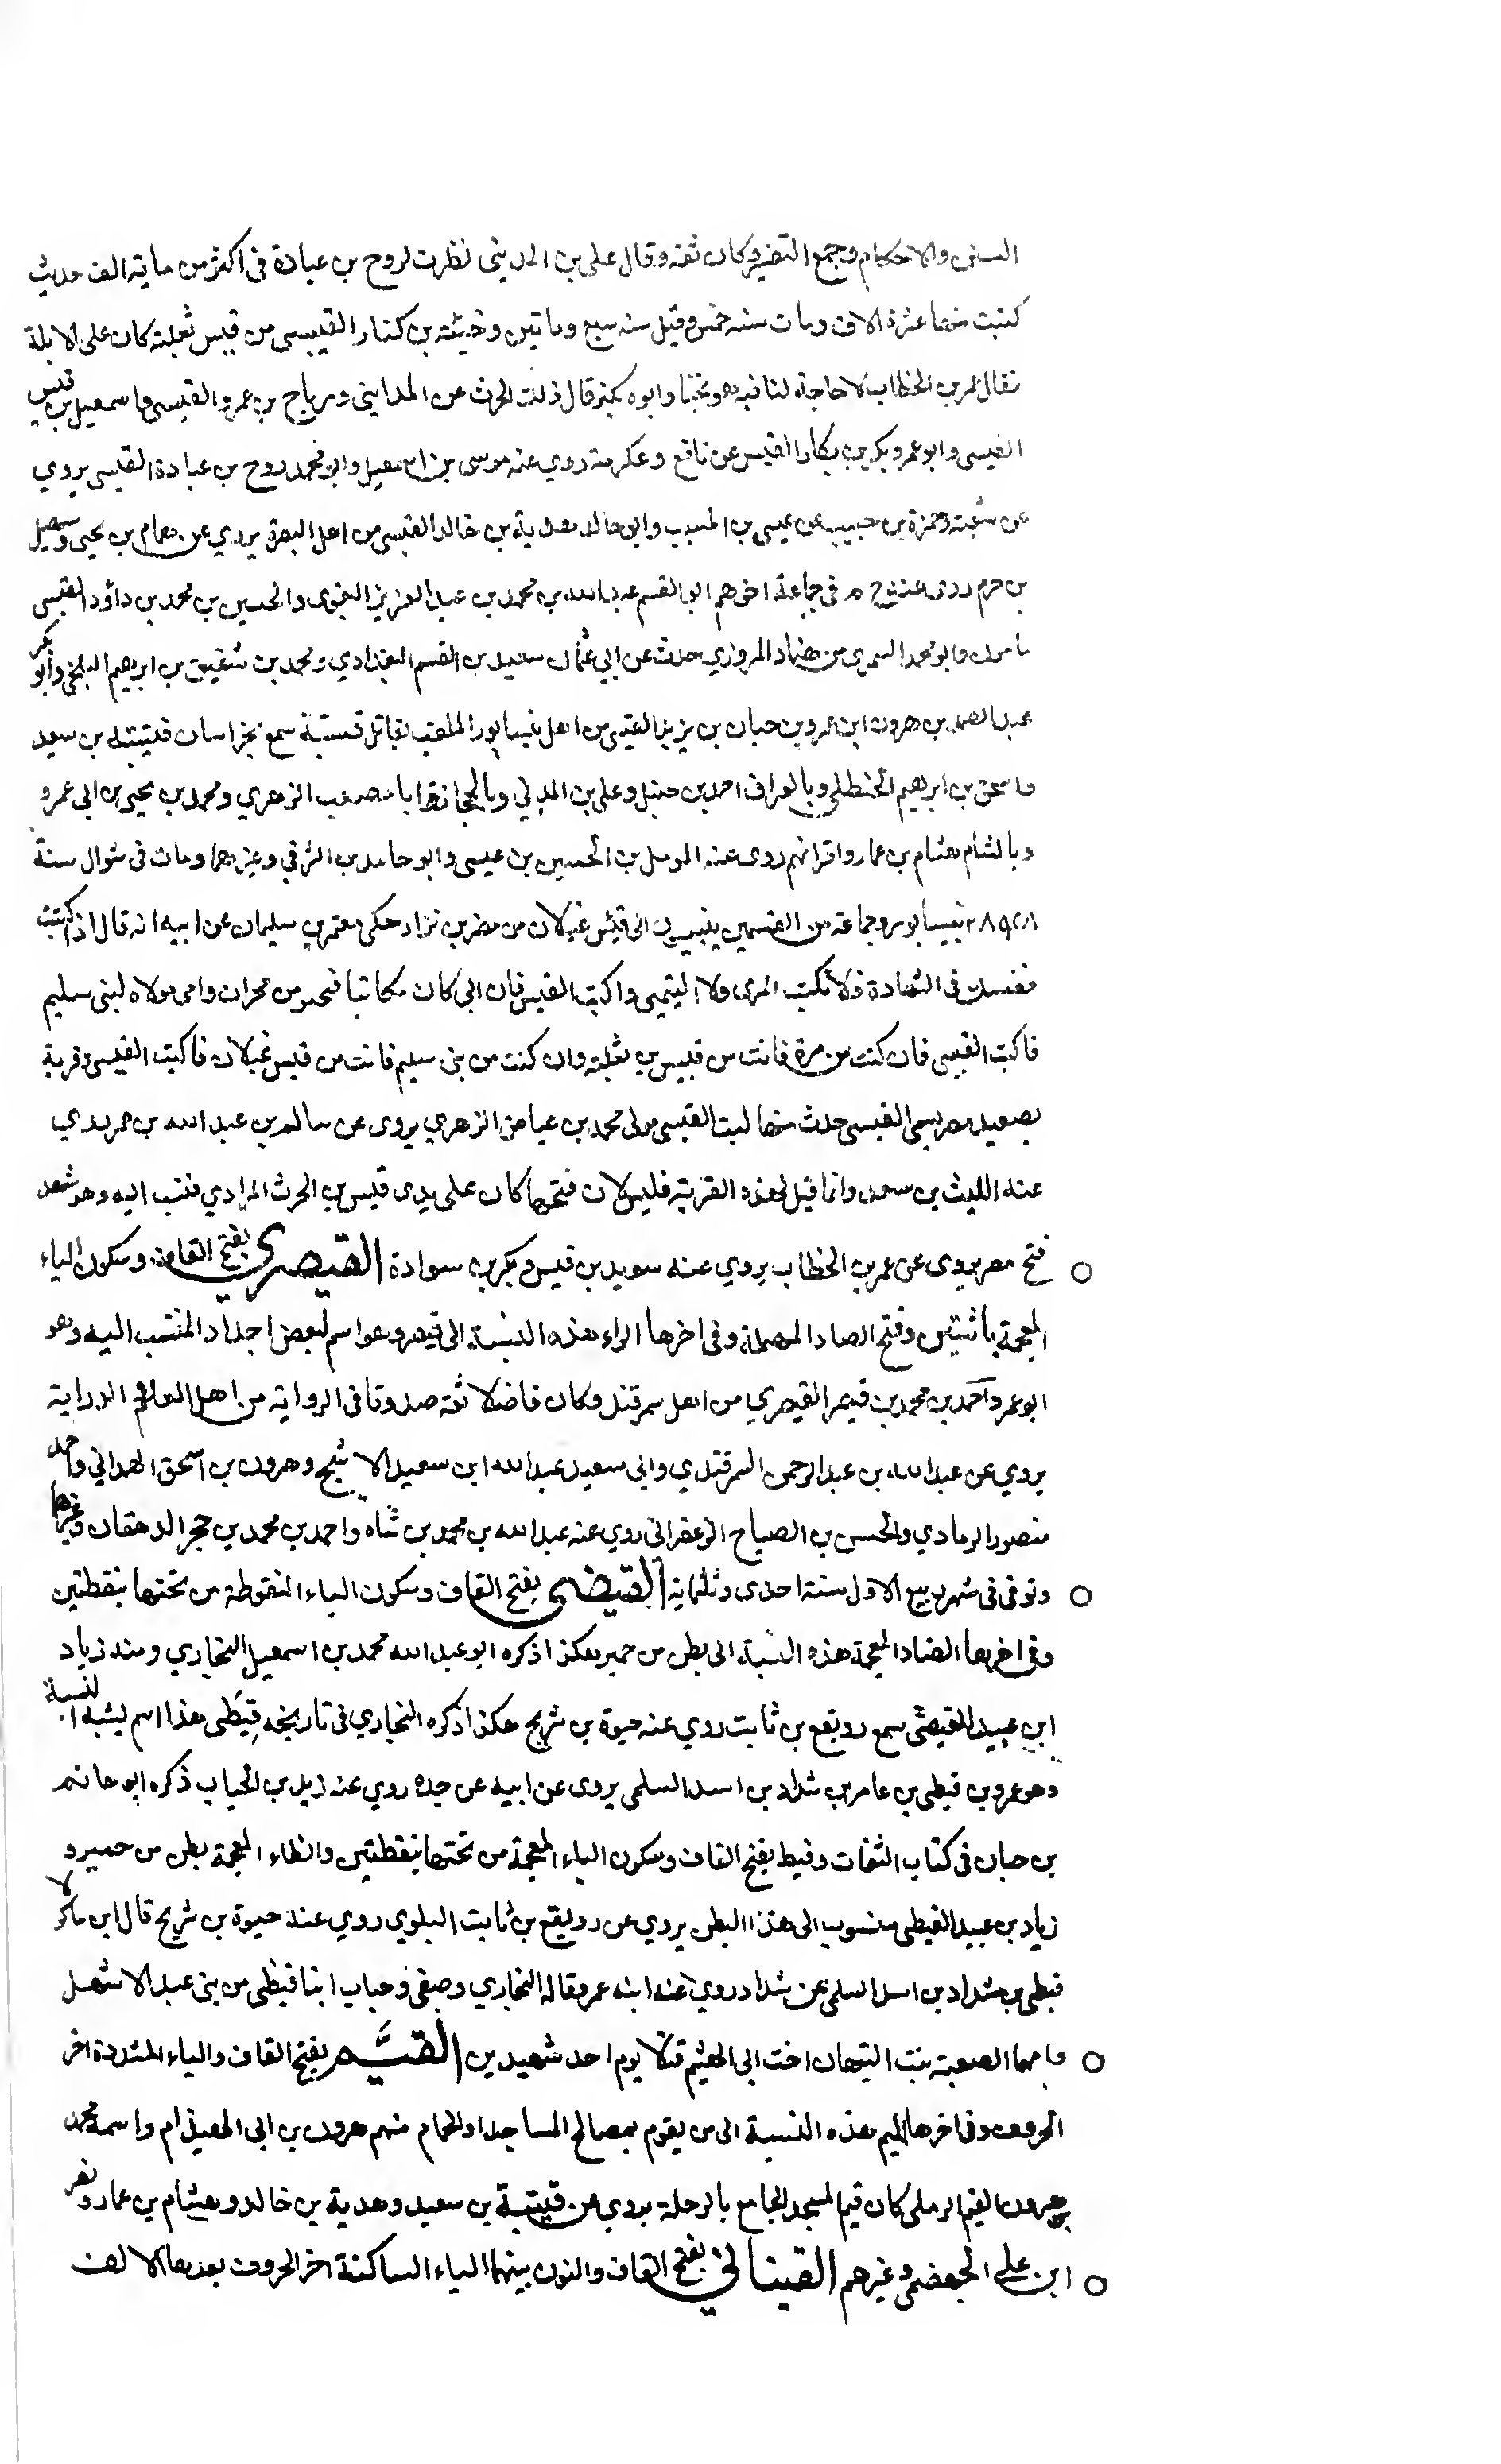 السنن والاحكام وجمع التفسير وكان ثقة وقال علي بن المديني نظرت لروح بن عبادة في اكثر من مائة الف حديث
كتبت منها عشرة الاف ومات سنة خمس وقيل سنة سبع وماتين و بن كنار القيسي من قيس ثعلبة كان على الابلة
فقال عمر بن الخطاب لا حاجة لنا فيه هو يخبا وابوه يكنز قال ذلك الحرث عن المدايني ورياح بن عمرو القيسي واسمعيل بن قيس
القيسي وابو عمرو بكر بن بكار القيسي عن نافع وعكرمة روي عنه موسى بن اسمعيل وابو محمد روح بن عبادة القيسي يروي
عن شعبة وحمزة بن حبيب عن عيسى بن المسيب وابو خالد هدبة بن خالد القيسي من اهل البصرة يروي عن همام بن يحيى وسهيل
بن حزم روى عنه خ م في جماعة اخرهم ابو القسم عبد الله بن محمد بن عبد العزيز البغوي والحسين بن محمد بن داؤد القيسي
مامون وابو محمد حدث عن ابي عثمان سعيد بن القسم البغدادي ومحمد بن شقيق بن ابرهيم البلخي وأبو بكر
عبد الصمد بن هرون ابن عمرو بن حبان بن يزيد القيسي من اهل نيسابور الملقب بقاتل قتيبة سمع بخراسان قتيبة بن سعيد
واسحق بن ابرهيم الحنظلي وبالعراق احمد بن حنبل وعلي بن المديني وبالحجاز ابا مصعب الزهري ومحمد بن يحيى بن ابي عمرو
وبالشام هشام بن عمار واقرانهم روى عنه المومل بن الحسين بن عيسى وابو حامد بن الشرقي وغيرهما ومات في شوال سنة
بنيسابور وجماعة من القيسيين ينسبون الى قيس غيلان من مضر بن نزار حكى معتمر بن سليمان عن ابيه انه قال اذا كتبت
في الشهادة فلا تكتب المري ولا التيمي واكتب القيسي فان ابي كان مكاتبا من حمران وامي مولاة لبني سليم
فاكتب القيسي فان كنت من مرة فانت من قيس بن ثعلبة وان كنت من بني سليم فانت من قيس غيلان فاكتب القيسي وقرية
بصعيد مصر يسمى القيسي حدث منها القيسي مولى محمد بن عياض الزهري يروى عن سالم بن عبد الله بن عمر روي
عنه الليث بن سعد وانما قيل لهذه القرية قليس لان فتحها كان على يدي قيس بن الحرث المرادي فنسب اليه وهو شهد
فتح مصر يروي عن عمر بن الخطاب يروي عنه سويد بن قيس وبكر بن سوادة القيصري بفتح القاف وسكون الياء
المعجمة باثنتين وفتح الصاد المهملة وفي اخرها الراء هذه النسبة الى قيصر وهو اسم لبعض اجداد المنتسب اليه وهو
ابو عمرو احمد بن محمد بن قيصر القيصري من اهل سمرقند وكان فاضلا ثقة صدوقا في الرواية من اهل العلم والدراية
يروي عن عبد الله بن عبد الرحمن السمرقندي وابي سعيد عبد الله ابن سعيد الاشج وهرون بن اسحق الهمداني واحمد
منصور الرمادي والحسن بن الصباح الزعفراني روي عنه عبد الله بن محمد بن شاه واحمد بن محمد بن حجر الدهقان وغيرهما
وتوفي في شهر ربيع الاول سنة احدى وثلثماية القيضي بفتح القاف وسكون الياء المنقوطة من تحتها بنقطتين
وفي اخرها الضاد المعجمة هذه النسبة الى بطن من حمير هكذا ذكره ابو عبد الله محمد بن اسمعيل البخاري ومنه زياد
ابن عبيد القيضي سمع رويفع بن ثابت روي عنه حيوة بن شريح هكذا ذكره البخاري في تاريخه قيظي هذا اسم يشبه النسبة
وهو عمرو بن قيظي بن عامر بن شداد بن اسد السلمي يروى عن ابيه عن جده روي عنه زيد بن الحباب ذكره ابو حاتم
بن حبان في كتاب الثقات وقيظ بفتح القاف وسكون الياء المعجمة من تحتها بنقطتين والظاء المعجمة بطن من حمير و
زياد بن عبيد القيظي منسوب الى هذا البطن يروي عن رويفع بن ثابت البلوي روي عنه حيوة بن شريح قال ابن ماكولا
قيظي بن شداد بن اسد السلمي عن شداد روي عنه ابنه عمرو قاله البخاري وصيفي وحباب ابنا قيظي من بني عبد الاشهل
وامهما الصعبة بنت التيهان اخت ابي الهيثم قتلا يوم احد شهيدين القيم بفتح القاف والياء المشددة اخر
الحروف وفي اخرها الميم هذه النسبة الى من يقوم بمصالح المساجد او الحمام منهم هرون بن ابي الهيذام واسمه محمد
بن هرون القيم الرملي كان قيم المسجد الجامع بالرملة يروي عن قتيبة بن سعيد وهدبة بن خالد وهشام بن عمار ونصر
ابن علي الجهضمي وغيرهم القيناني بفتح القاف والنون بينهما الياء الساكنة اخر الحروف بعدها الالف